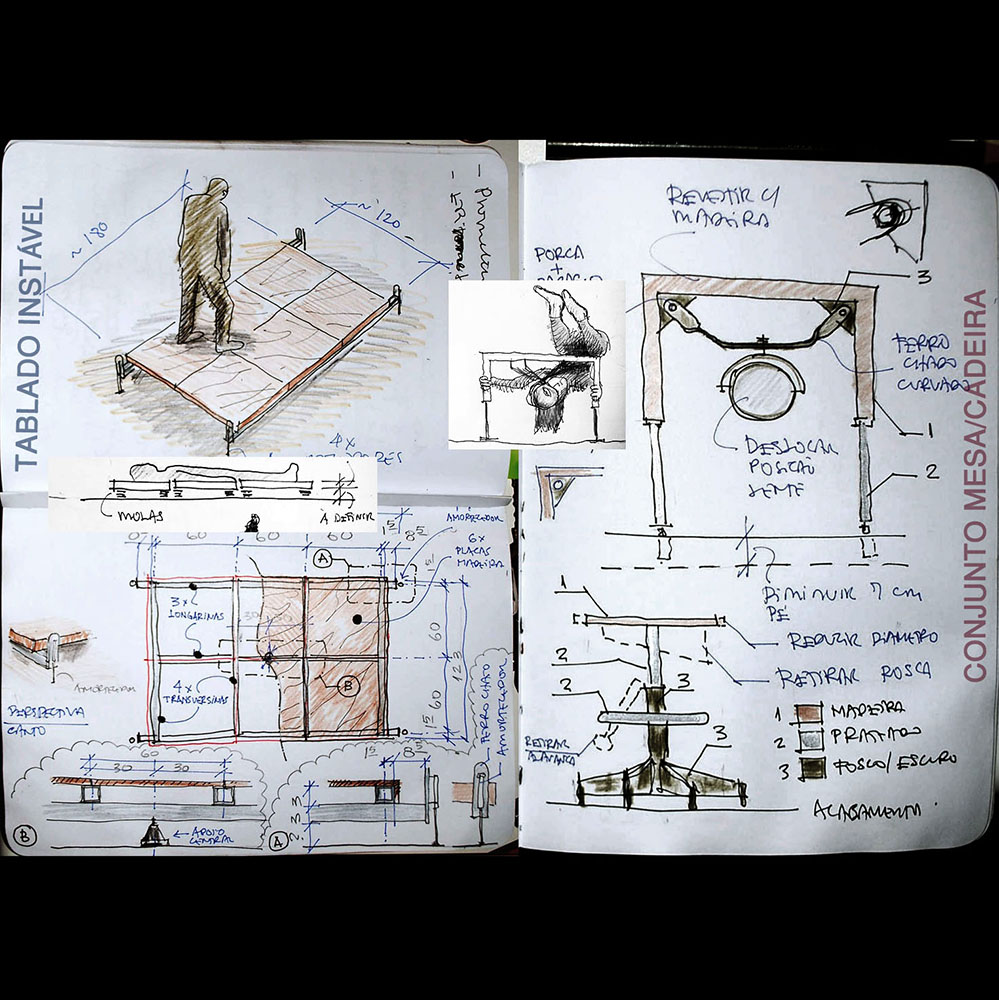 TABLADO INSTÁVEL
~180
~120
4x
MOLAS
À DEFINIR
07
60
60
60
1⁵
8⁵
AMORTECEDOR
6x
PLACAS
MADEIRA
A
3x
LONGARINAS
30
30
60
123
60
1⁵
4x
TRANSVERSINAS
B
AMORTECEDOR
PERSPECTIVA
CANTO
FERRO CHATO
AMORTECEDOR
60
30
30
APOIO
CENTRAL
B
1⁵
8⁵
3
3
2
A
CONJUNTO MESA/CADEIRA
REVESTIR C/
MADEIRA
PORCA
+
3
FERRO
CHATO
CURVADO
1
2
DESLOCAR
POSIÇÃO
LEME
DIMINUIR 7 CM
PÉ
1
REDUZIR DIÂMETRO
2
3
RETIRAR ROSCA
2
RETIRAR
ALAVANCA
3
1 MADEIRA
2 PRATEADO
3 FOSCO/ESCURO
ACABAMENTO